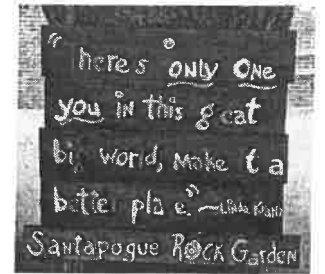 "There's only one
you in this great
big world, make it a
better place." ~Linda Kranz
Santapogue ROCK Garden